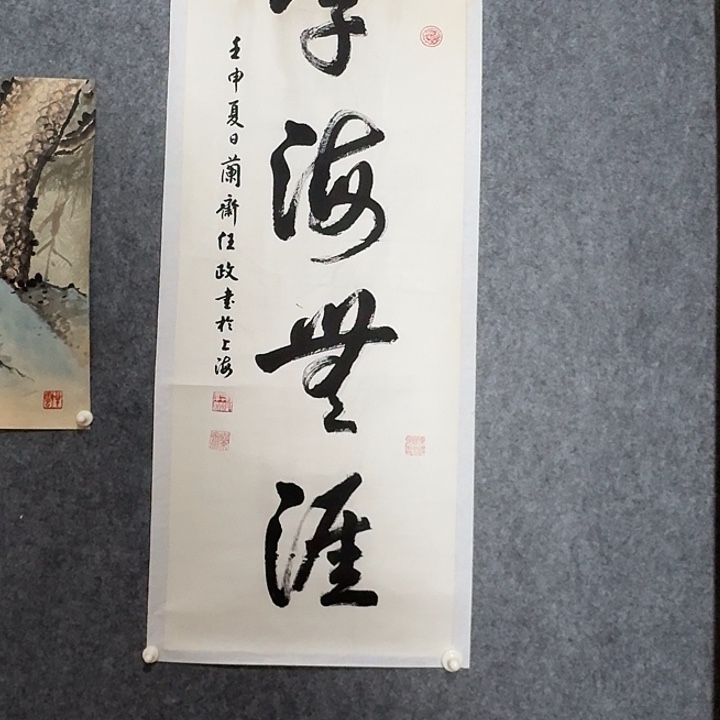 學海無涯
壬申夏日蘭齋任政書於上海